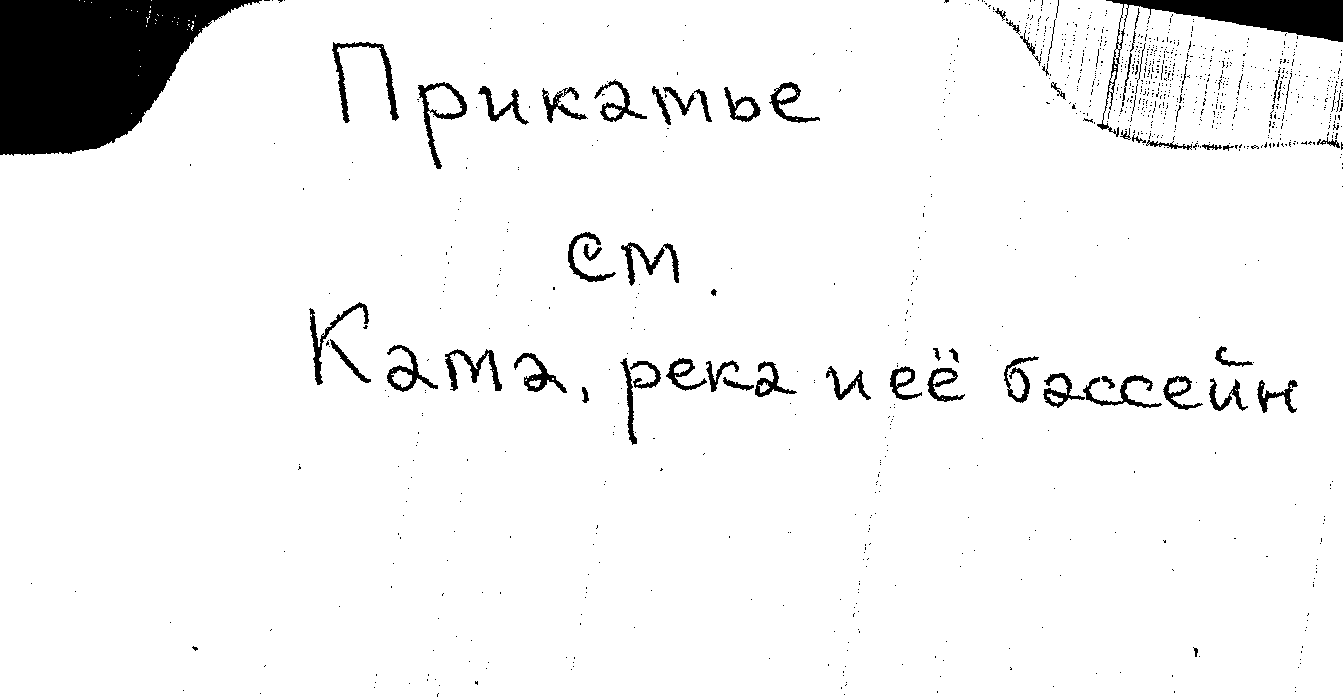 Прикамье
см.
Кама, река и её бассейн